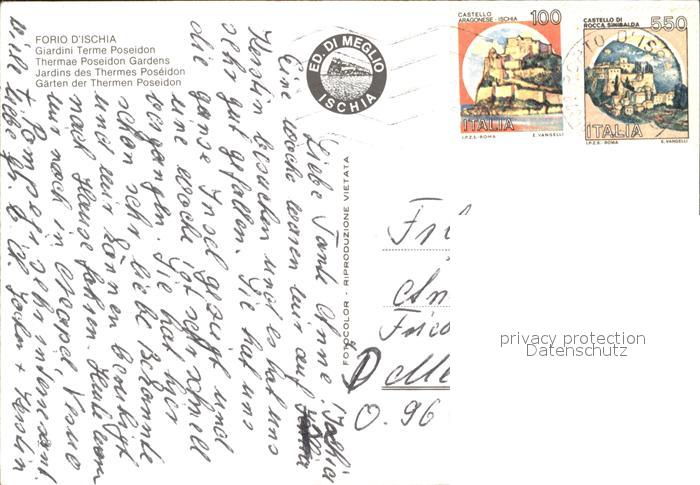 FORIO D'ISCHIA
Giardini Terme Poseidon
Thermae Poseidon Gardens
Jardins des Thermes Poséidon
Gärten der Thermen Poseidon
ED. DI MEGLIO
ISCHIA
CASTELLO
ARAGONESE - ISCHIA
100
ITALIA
I.P.Z.S. - ROMA E. VANGELLI
CASTELLO DI
ROCCA SINIBALDA
550
ITALIA
I.P.Z.S. - ROMA E. VANGELLI
FOTOCOLOR - RIPRODUZIONE VIETATA
Liebe Tante Änne!
Eine Woche waren wir auf Ischia
Kerstin besuchen und es hat uns
sehr gut gefallen. Sie hat uns
die ganze Insel gezeigt und
eine Woche ist sehr schnell
vergangen. Sie hat hier
schon sehr liebe Bekannte
und wir können beruhigt
nach Hause fahren. Heute waren
wir noch in Neapel, Vesuv
+ Pompei sehr interessant.
viele liebe Gr.
D
O. 96
privacy protection
Datenschutz